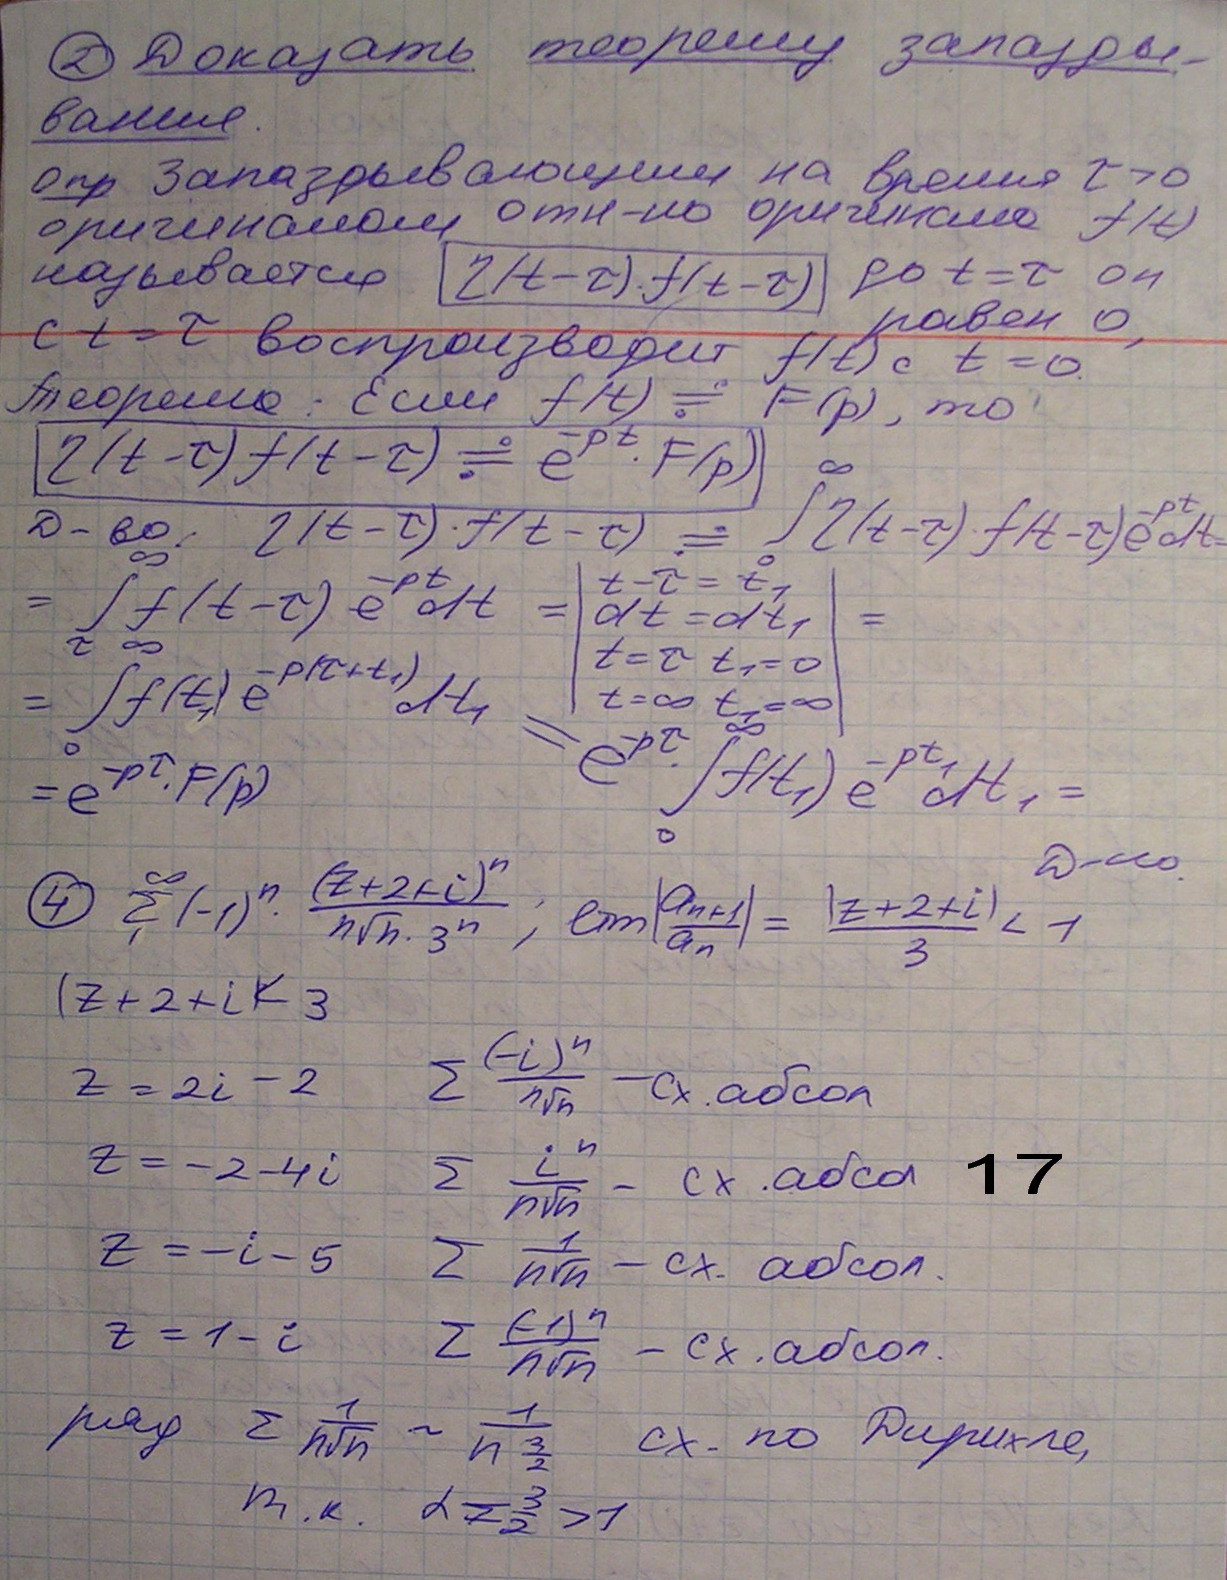 ② Доказать теорему запазды-
вания.
Опр Запаздывающим на время τ>0
оригиналом отн-но оригинала f(t)
называется η(t-τ)·f(t-τ) до t=τ он
равен 0,
с t=τ воспроизводит f(t) с t=0.
Теорема: Если f(t) ≓ F(p), то
η(t-τ)f(t-τ) ≓ e^{-pt}·F(p)
Д-во: η(t-τ)·f(t-τ) ≓ ∫_0^∞ η(t-τ)·f(t-τ)e^{-pt}dt=
= ∫_τ^∞ f(t-τ) e^{-pt}dt = | t-τ=t₁ dt=dt₁ t=τ t₁=0 t=∞ t₁=∞ | =
= ∫_0^∞ f(t₁) e^{-p(τ+t₁)} dt₁ = e^{-pτ}·∫_0^∞ f(t₁) e^{-pt₁}dt₁ =
= e^{-pτ}·F(p)
Д-но.
④ Σ_1^∞ (-1)^n · (z+2+i)^n / (n√n·3^n) ; lim|a_{n+1}/a_n| = |z+2+i|/3 < 1
|z+2+i|<3
z=2i-2 Σ (-i)^n/(n√n) - сх.абсол
z=-2-4i Σ i^n/(n√n) - сх.абсол 17
z=-i-5 Σ 1/(n√n) - сх. абсол.
z=1-i Σ (-1)^n/(n√n) - сх.абсол.
ряд Σ 1/(n√n) ~ 1/(n^{3/2}) сх. по Дирихле,
т.к. α=3/2>1